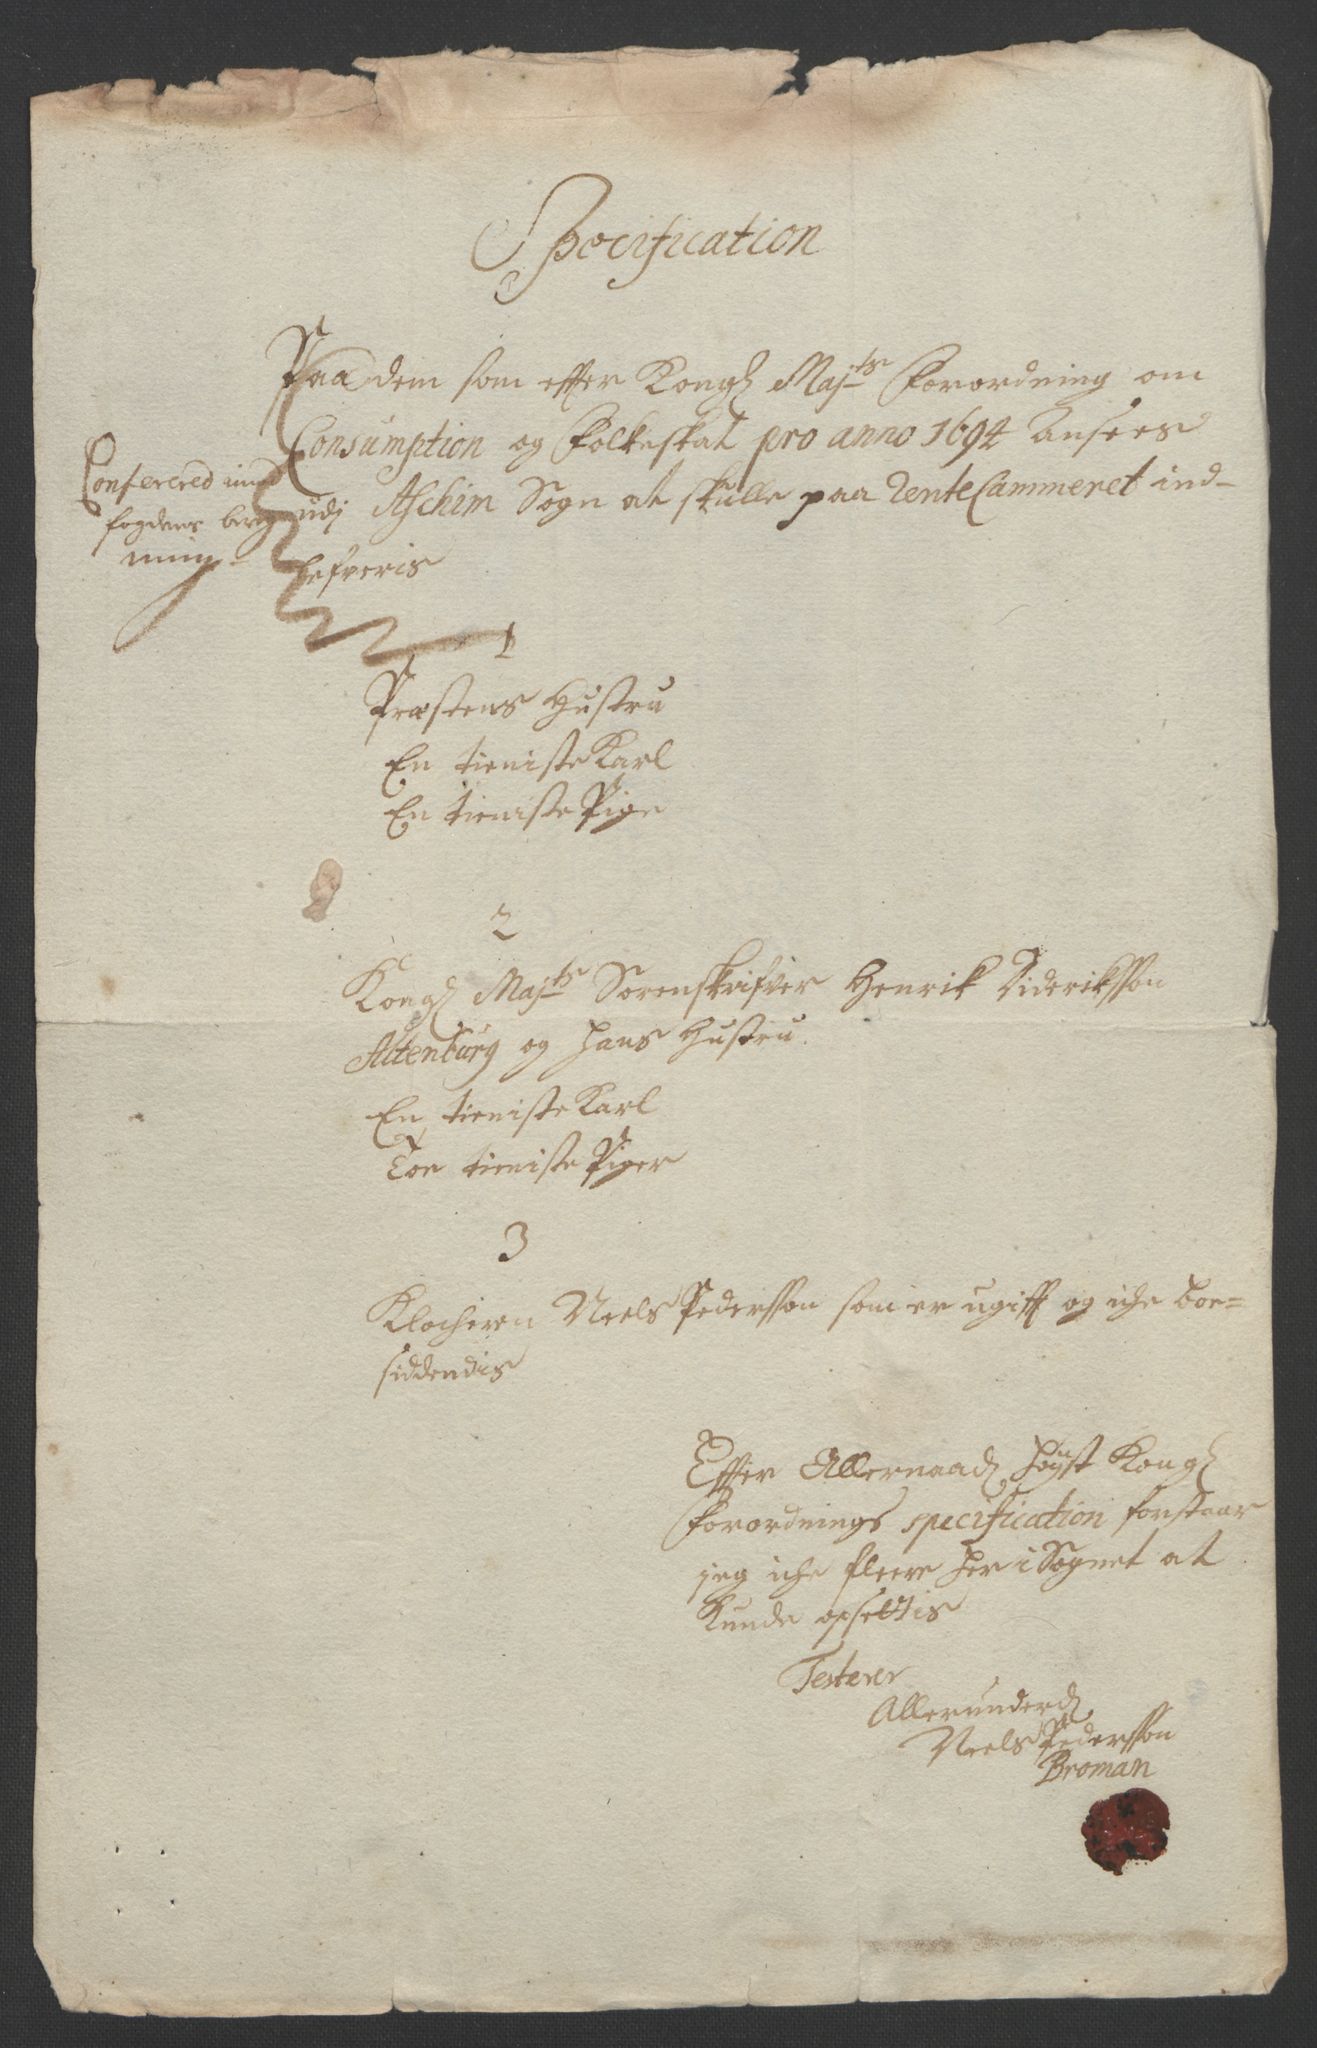 Specification
Paa dem som effter Kongl Majts Forordning om
Consumption og Folkeskat pro anno 1694 ansees
udj Aschim Sogn at skulle paa RenteCammeret ind-
lefveris
Conferered med
fogdens
1
Præstens Hustru
En tieniste Karl
En tieniste Pige
2
Kongl Majts Sorenskrifver Henrik Dideriksson
Altenburg og hans Hustru.
En tieniste Karl
Toe tieniste Piger
3
Klocheren Neels Pedersson som er ugifft og iche boe=
siddendis
Effter Allernaadl høyst Kongl
Forordnings specification forstaar
jeg iche fleere her i Sognet at
kunde opsettis
Testerer
Allerunderdl
Neels Pedersson
Broman